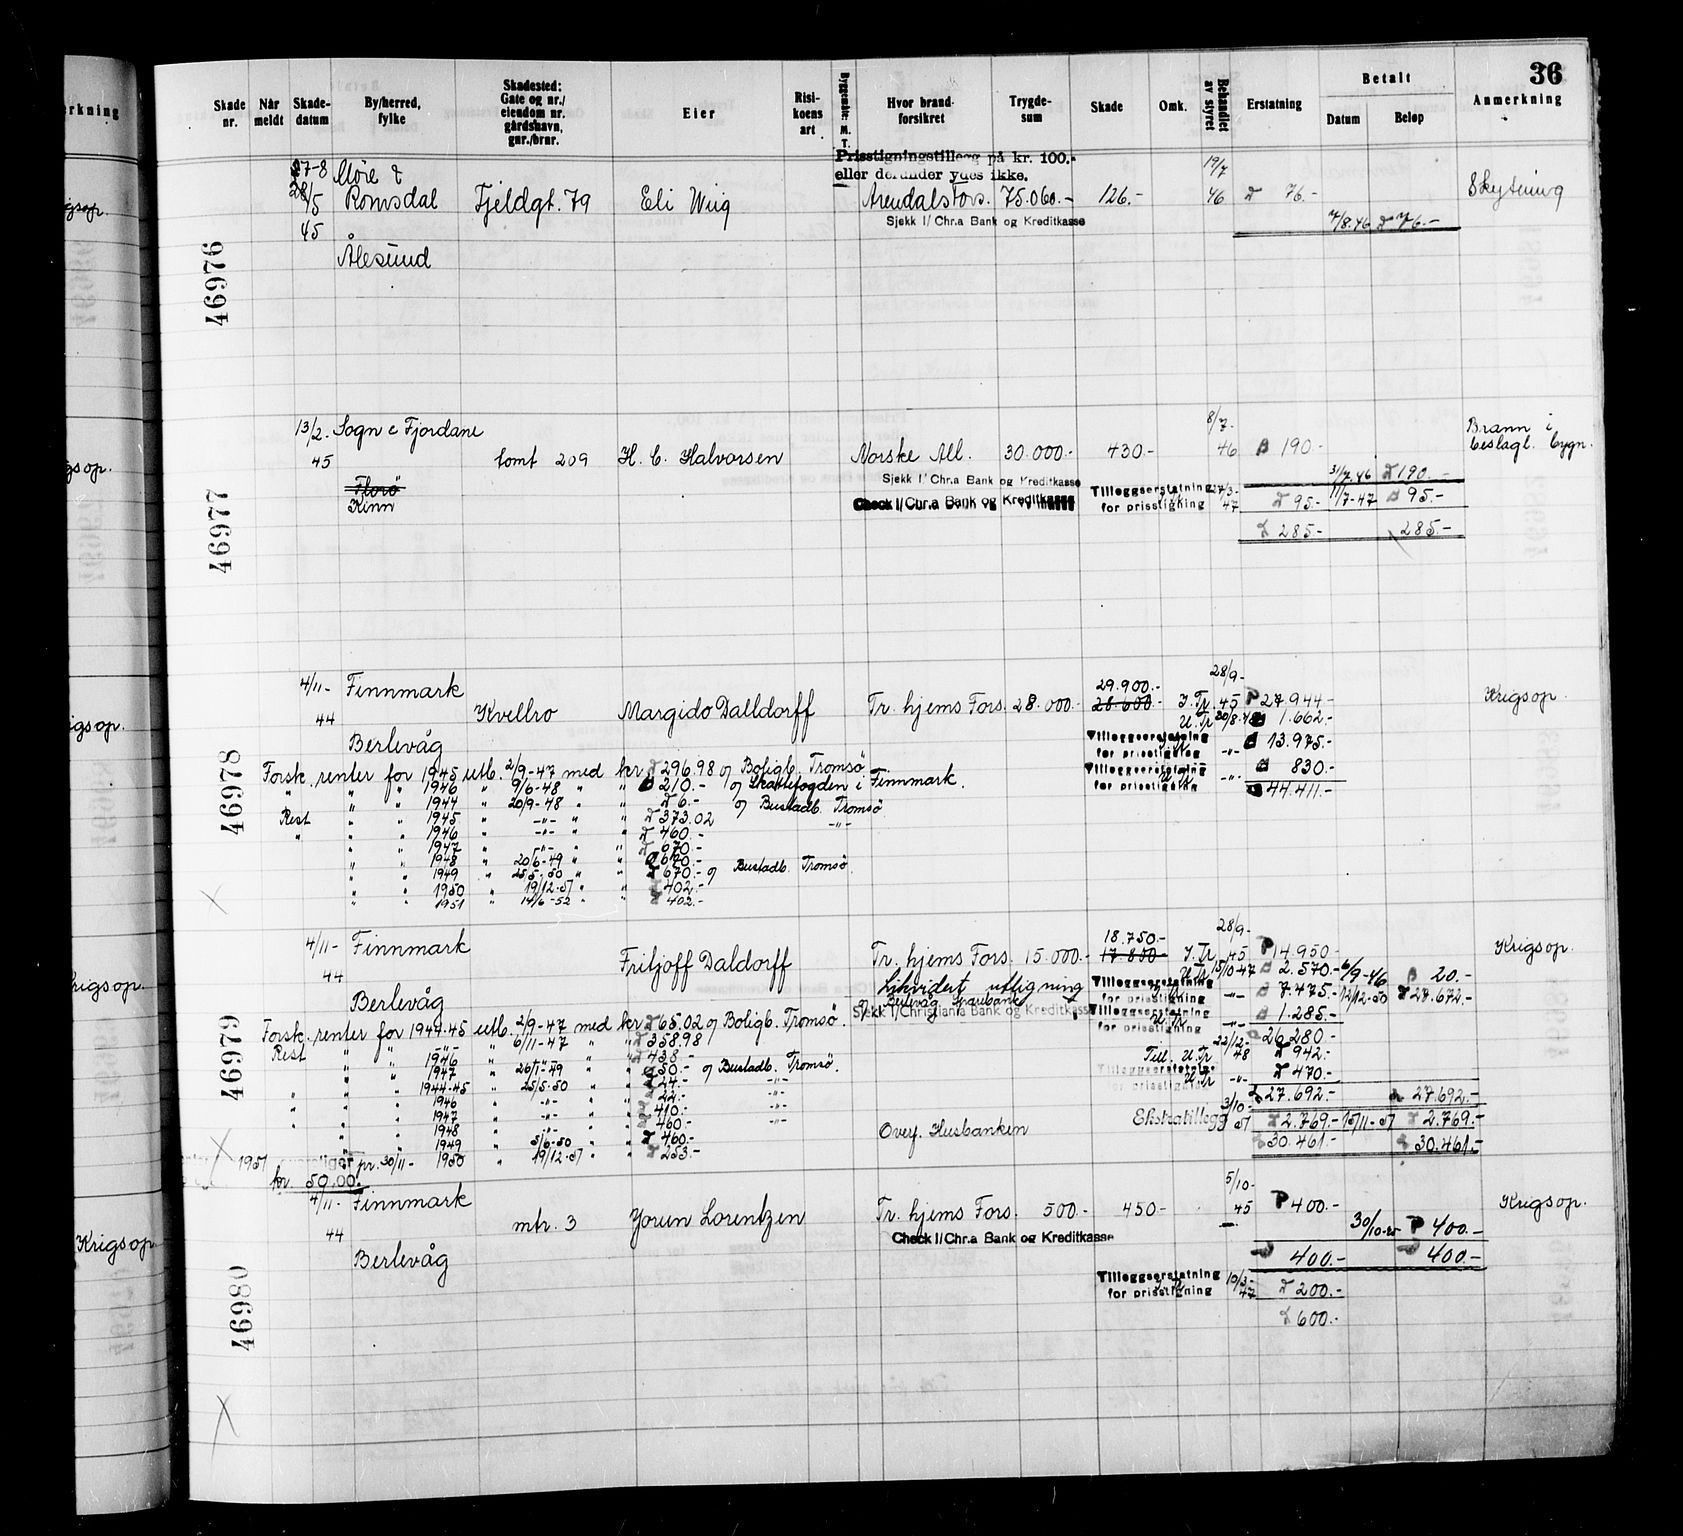 36
Skade nr. Når meldt Skade-datum By/herred, fylke Skadested: Gate og nr./ eiendom nr. gårdshavn, gnr./brnr. Eier Risi-koens art M. T. Hvor brand-forsikret Trygde-sum Skade Omk. Behandlet av styret Erstatning Betalt Datum Beløp Anmerkning
Prisstigningstillegg på kr. 100.-
eller derunder ydes ikke.
46976
27-8 Møre & 19/7
28/5 Romsdal Fjeldgt. 79 Eli Wiig Arendalsfors. 75.060.- 126.- 46 76.- Skytning
45 Sjekk I/ Chr.a Bank og Kreditkasse 7/8.46 76.-
Ålesund
46977
13/2. Sogn & Fjordane 8/7. Brann i
45 tomt 209 H. C. Halvorsen Norske All. 30.000.- 430.- 46 190.- beslagl. bygn.
Sjekk I/ Chr.a Bank og Kreditkasse 31/7.46 190.-
Florø Tilleggserstatning 27/3-
Kinn Check I/Chr.a Bank og Kreditkasse for prisstigning 47 95.- 11/7-47 95.-
285.- 285.-
46978
4/11- Finnmark 29.900.- 28/9-
44 Kvellro Margido Dalldorff Tr. hjems Fors. 28.000.- 28.600.- I. Tr. 45 P 27.944.- Krigsop.
U. Tr 1.662.-
Berlevåg Tilleggserstatning for prisstigning -"- 13.975.-
Forsk. renter for 1945 utb. 2/9-47 med kr. 296.98 Boligb. Tromsø
Tilleggserstatning for prisstigning -"- 830.-
" " " 1946 " 9/6-48 " " 210.- Skattefogden i Finnmark. 44.411.-
" " 1944 " 20/9-48 " " 6.- Bustadb. Tromsø
Rest " " 1945 " -"- " " 373.02 -"-
" " " 1946 " -"- " " 460.-
" " 1947 " -"- " " 670.-
" " 1948 " 20/6-49 " " 670.-
" " 1949 " 25/5-50 " " 670.- Bustadb. Tromsø.
" " 1950 " 19/12-51 " " 402.-
" " 1951 " 14/6-52 " " 402.-
46979
4/11- Finnmark 18.750.- 28/9-
44 Fritjoff Daldorff Tr. hjems Fors. 15.000.- 17.850.- I. Tr 45 P 14.950.- Krigsop.
U. Tr 15/10-47 2.570.- 6/9-46 20.-
Berlevåg Likvidert utligning Tilleggserstatning for prisstigning -"- 7.475.- 12/12-50 27.672.-
Berlevåg Sparebank
Sjekk I/Christiania Bank og Kreditkasse
Forsk. renter for 1944-45 utb. 2/9-47 med kr. 65.02 Boligb. Tromsø.
Tilleggserstatning for prisstigning -"- 1.285.-
Rest " " -"- " 6/11-47 " " 358.98 26.280.-
" " 1946 " -"- " " 438.- Till. U. Tr 22/12-48 942.-
" " 1947 " 26/1-49 " " 50.- Bustadb. Tromsø.
Tilleggserstatning for prisstigning U. Tr -"- 470.-
" " " 1944-45 " 25/5-50 " " 24.- -"-
" " " 1946 " -"- " " 22.- -"- 27.692.- 27.692.-
" " " 1947 " -"- " " 410.- -"-
" " 1948 " -"- " " 460.- Overf. Husbanken Ekstratillegg 3/10-51 2.769.- 15/11-51 2.769.-
" " 1949 " 5/6-50 " " 460.- 30.461.- 30.461.-
1951 pr. 30/11- 1950 " 19/12-51 " " 253.-
kr. 50.00.
46980
4/11- Finnmark 5/10-
44 mtr. 3 Jorun Lorentzen Tr. hjems Fors. 500.- 450.- 45 P 400.- Krigsop.
Check I/Chr.a Bank og Kreditkasse 30/10-45 P 400.-
Berlevåg 400.- 400.-
Tilleggserstatning 10/3-
for prisstigning 47 200.-
600.-
erkning
igsop.
gsop.
igsop.
rigsop.
Krigsop.